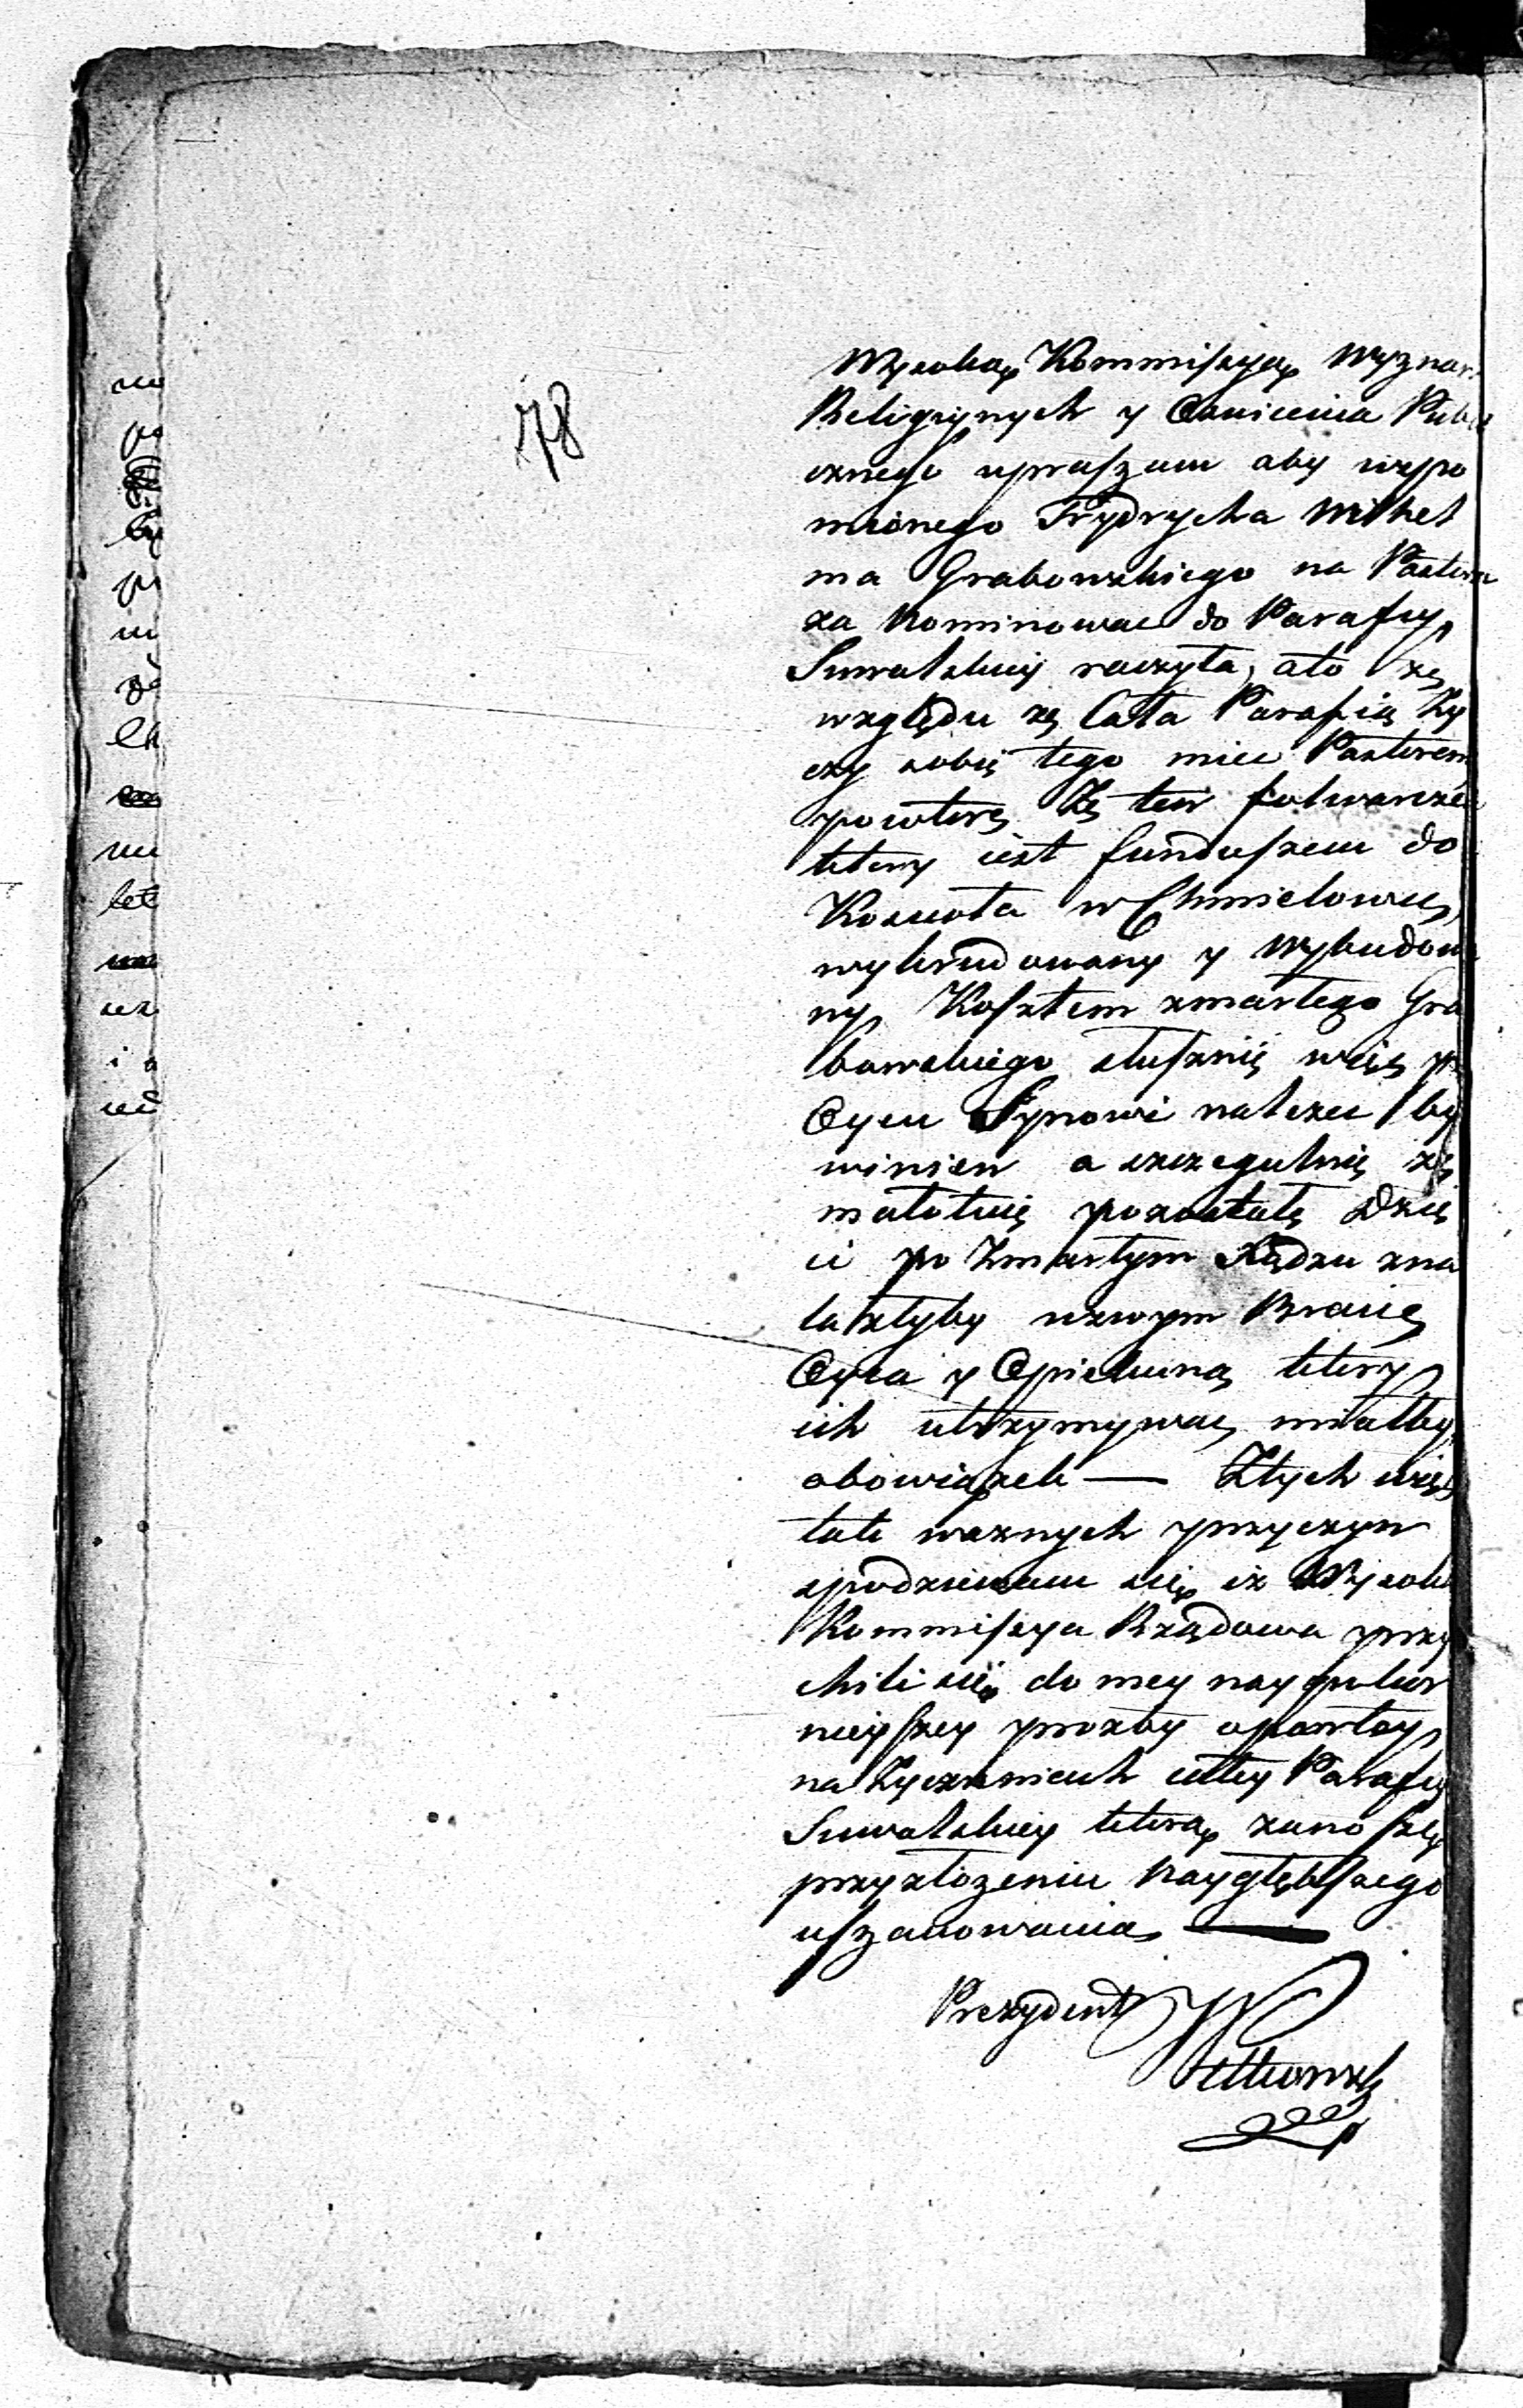 78
Wysoką Kommissyą Wyznan
Religiynych y Oswicenia Publi
cznego upraszam aby wspo
mnionego Frydrycha Wilhel
ma Grabowskiego na Pastora
za Nominowac do Parafiy
Suwalskiey raczyła, a to ze
względu że Cała Parafia Zy
czy sobie tego miec Pastorem
powtore Ze ten folwarczek
ktory iest funduszem do
Koscioła w Chmielowce
wykrudowany y Wybudowa
ny Kosztem zmarłego Gra
bowskiego słusznie więc po
Oycu Synowi nalezec by
winien a szczegulnie ze
małotnie pozostałe Dzie
ci po Zmarłym Xiędzu zna
lazłyby wswym Bracie
Oyca y Opiekuna ktory
ich utrzymywac miałby
obowiązek — Ztych więc
tak waznych przyczyn
spodziewam się iz Wysoka
Kommissya Rządowa przy
chili się do mey naypokor
nieyszey prozby opartey
na Zyczeniach całey Parafiy
Suwalskiey ktorą zanoszę
przyzłozeniu Naygłębszego
uszanowania —
Prezydent